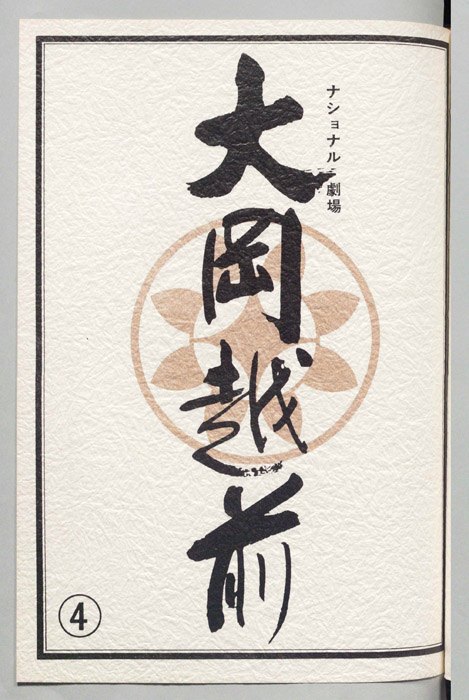 ナショナル劇場
大岡越前
④